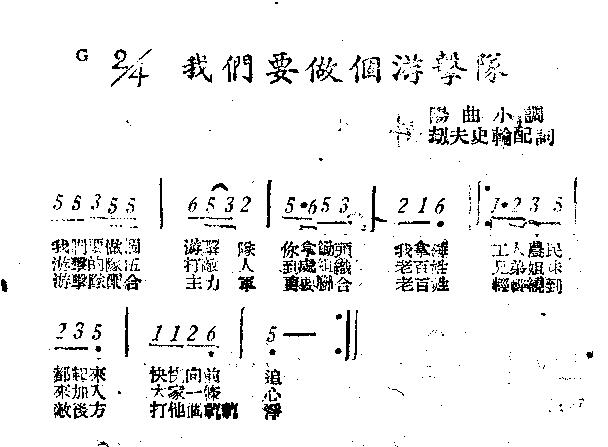 G 2/4 我們要做個游擊隊
陽曲小調
劫夫史輪配詞
5 5 3 5 5 6 5 3 2 5 • 6 5 3 2 1 6 1 • 2 3 5
我們要做個 游擊隊 你拿鋤頭 我拿 工人農民
游擊的隊伍 打敵人 到處組織 老百姓 兄弟姐妹
游擊隊配合 主力軍 聯合 老百姓 到
2 3 5 1 1 2 6 5 —
都起來 快快向前 追
來加入 大家一條 心
敵後方 打他個乾乾 淨